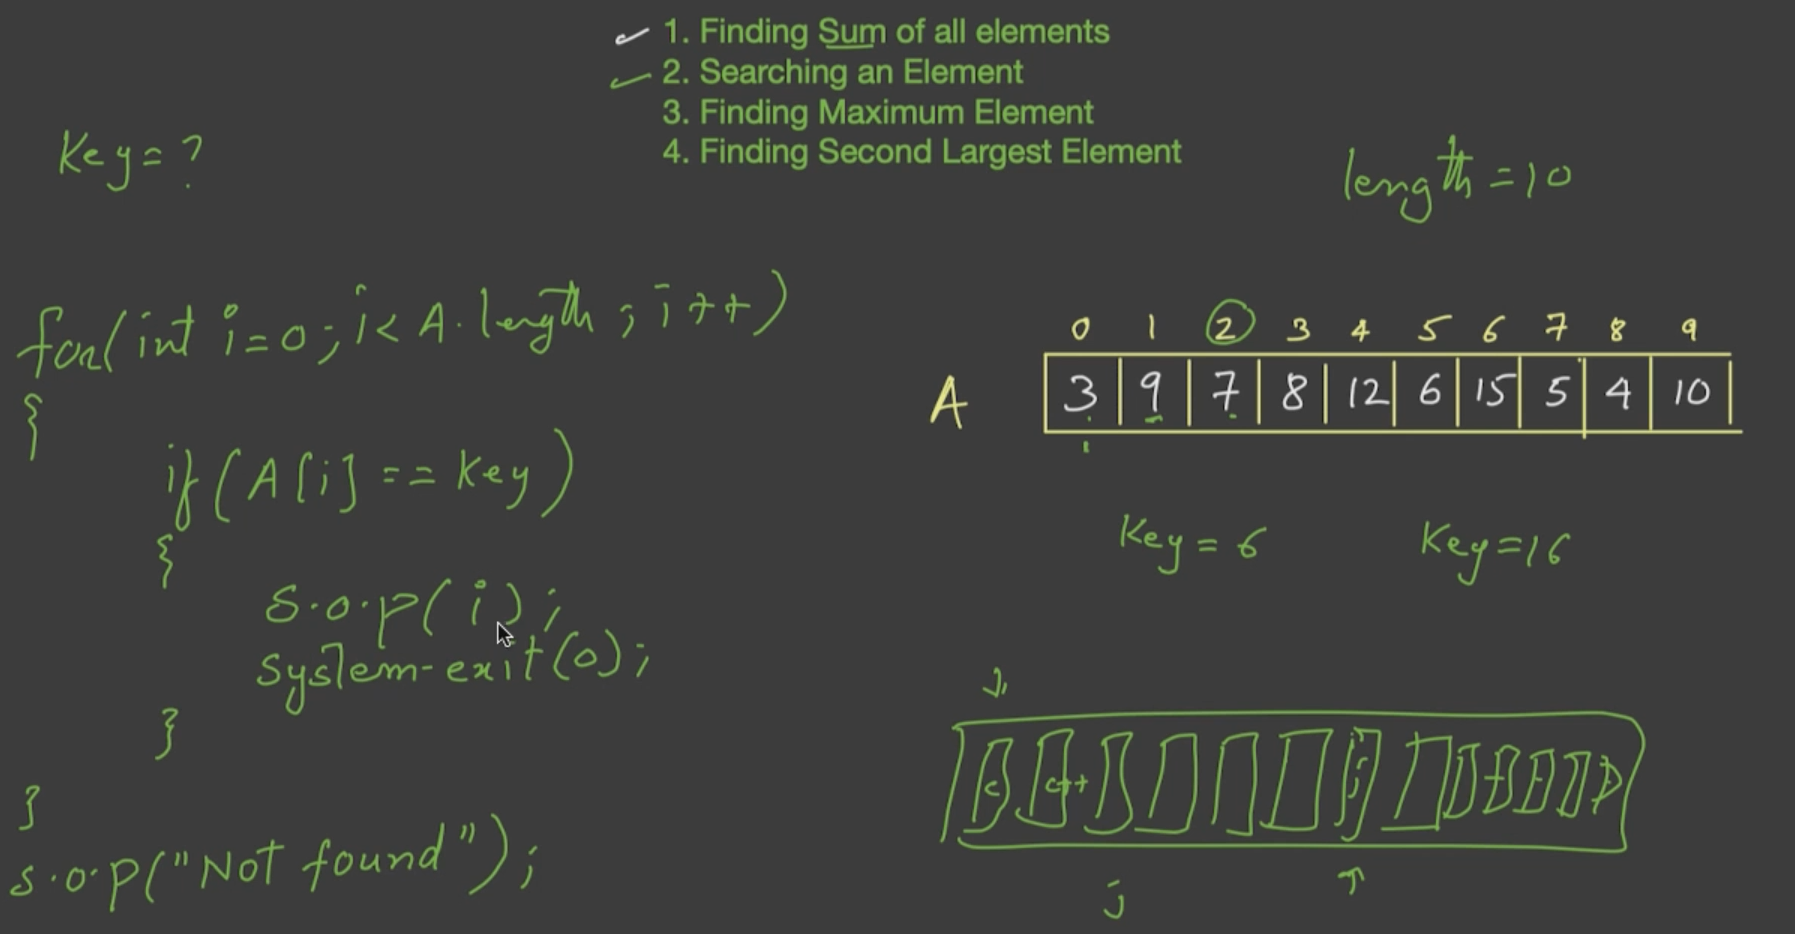 1. Finding Sum of all elements
2. Searching an Element
3. Finding Maximum Element
4. Finding Second Largest Element
Key=?
length=10
for(int i=0;i<A.length;i++)
{
if(A[i]==Key)
{
s.o.p(i);
system-exit(0);
}
}
s.o.p("Not found");
0 1 2 3 4 5 6 7 8 9
A 3 9 7 8 12 6 15 5 4 10
i
Key=6 Key=16
c c++
j